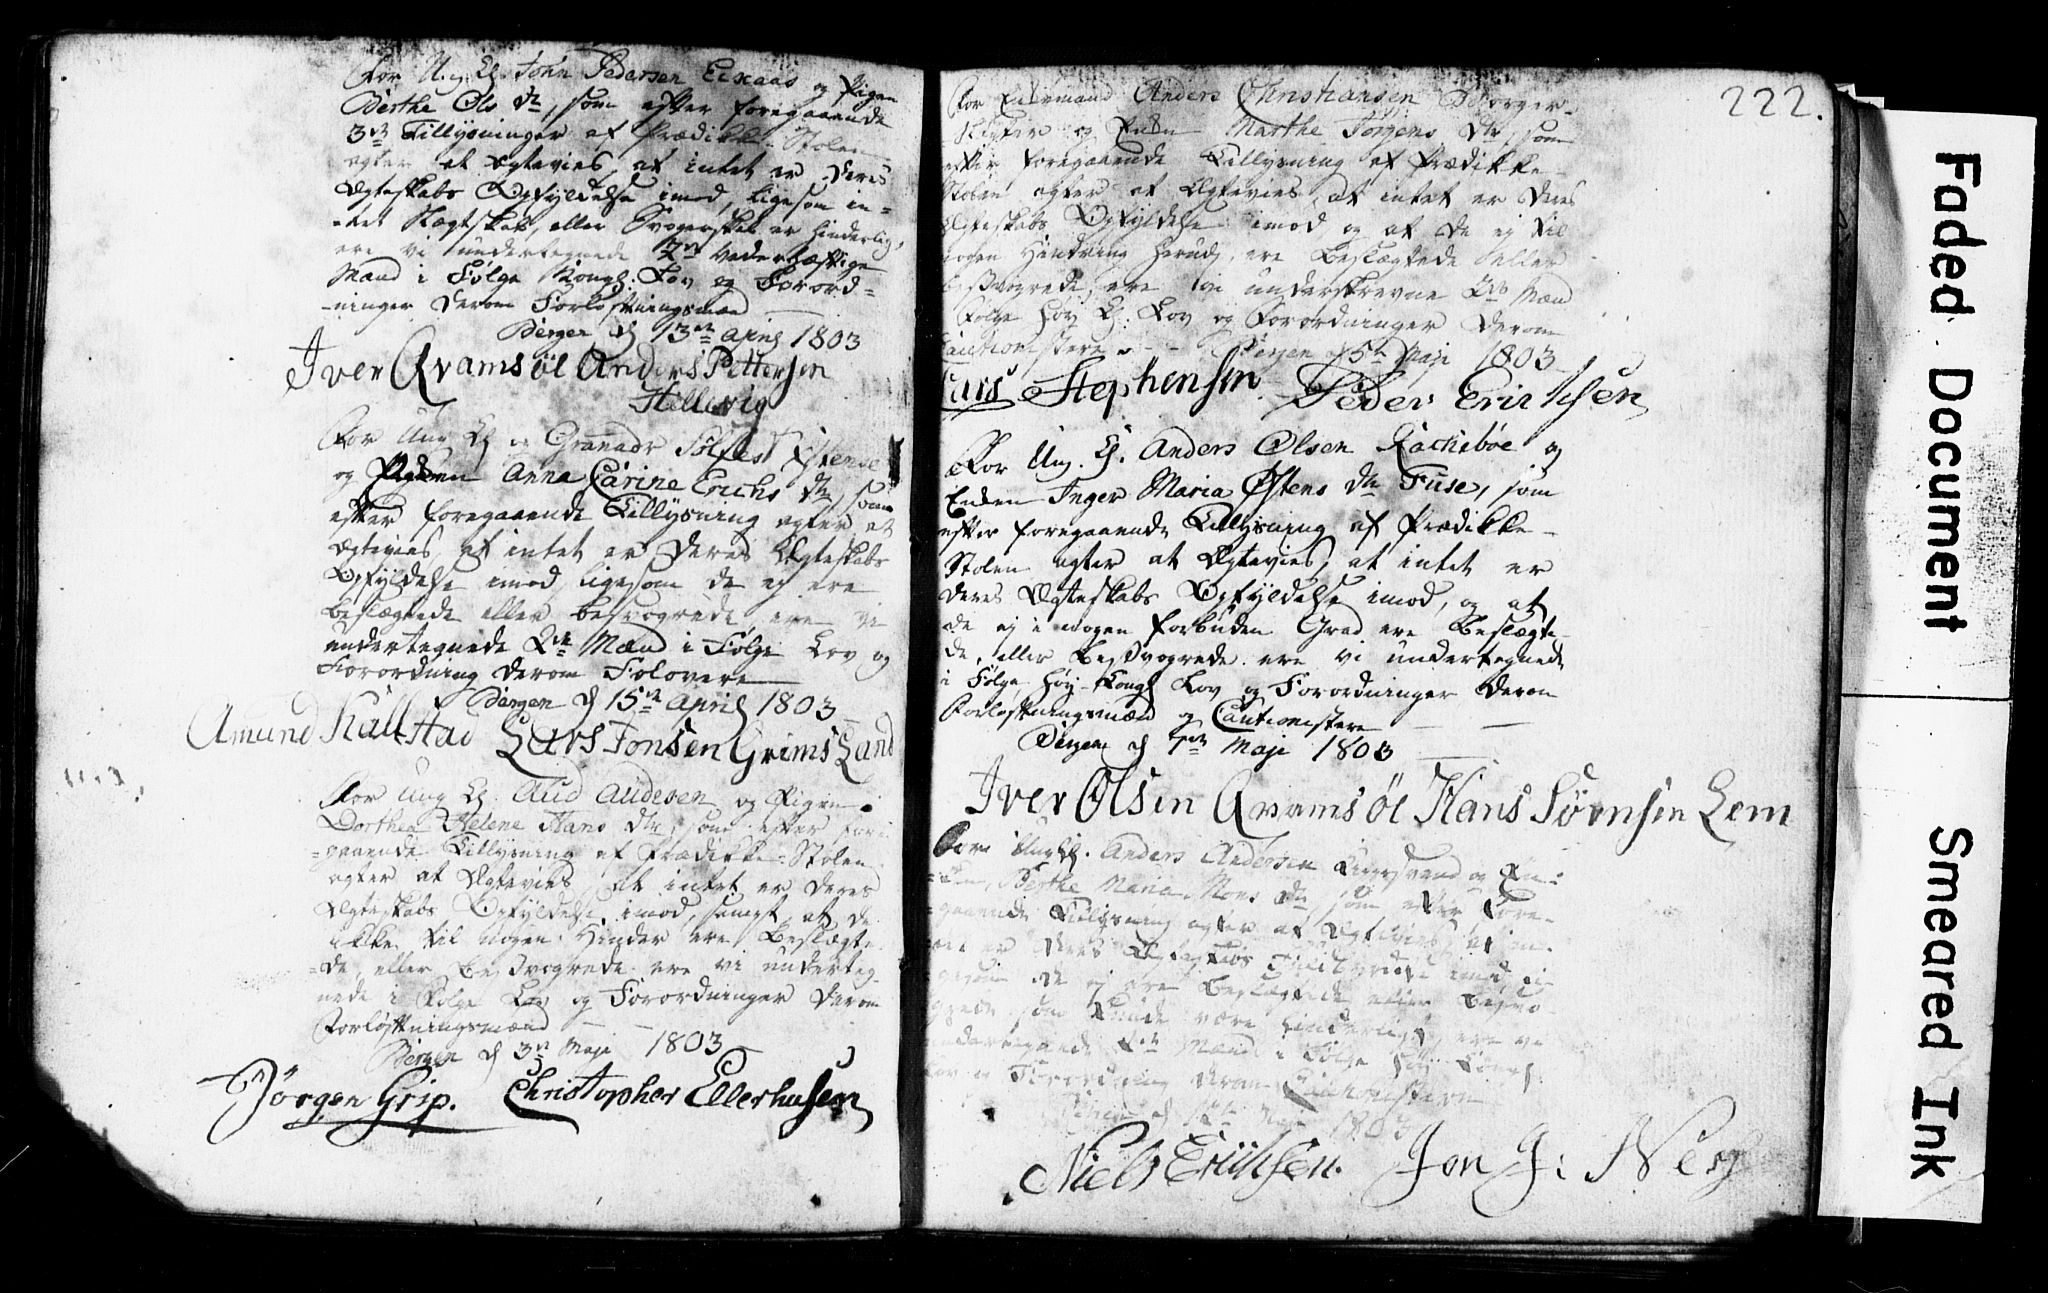 For Ung Kl. John Pedersen Eixaas og Pigen
Berthe Ols dtr, som efter foregaaende
3de Tillysninger af Prædikke-Stolen
agter at Ægtevies, at intet er Deres
Ægteskabs Opfyldelse imod, ligesom in-
-tet Slægtskab, eller Svogerskab er hinderlig,
ere vi undertegnede 2de Vederhæftige
Mænd i Følge Kongl: Lov og Forord=
-ninger derom Forlovningsmænd
Bergen d 13de April 1803
Iver Qvamsøl Anders Pettersen
Hellevig
For Ung Kl
og Pigen Anna Carine Erichs dtr, som
efter foregaaende Tillysning agter at
Ægtevies, at intet er Deres Ægteskabs
Opfyldelse imod, ligesom de ej ere
Beslægtede eller besvogrede, ere vi
undertegnede 2de Mænd i Følge Lov og
Forordning derom Folovere
Bergen d 15de April 1803
Amund Hallstad Lars Jonsen Grimsland
For Ung Kl. Aud Audesen og Pigen
Dorthea Helene Hans dtr, som efter fore
=gaaende Tillysning af Prædikke-Stolen
agter at Ægtevies, at intet er Deres
Ægteskabs Opfyldelse imod, samt at de
ikke til nogen Hinder ere Beslægte
=de, eller Besvogrede ere vi underteg-
nede i Følge Lov og Forordninger derom
Forløftningsmænd
Bergen d 3de Maji 1803
Jörgen Grip. Christopher Ellerhusen
222.
For Enkemand Anders Christiansen Borger
og Enken Marthe Jørgens dtr, som
efter foregaaende Tillysning af Prædikke-
Stolen agter at Ægtevies, at intet er Deres
Ægteskabs Opfyldelse imod og at de ej til
nogen Hindring herudj, ere Beslægtede eller
besvogrede, ere vi underskrevne 2de Mænd
Følge høy Kl. Lov og Forordninger derom
Cautionistere Bergen d 5te Maji 1803
Lars Stephensen Peder Erichsen
For Ung. Kl. Anders Olsen Rackebøe og
Enken Inger Maria Østens dtr Fuse, som
efter foregaaende Tillysning af Prædikke-
Stolen agter at Ægtevies, at intet er
deres Ægteskabs Opfyldelse imod, og at
de ej i nogen forbuden Grad ere Beslægte
de, eller Besvogrede ere vi undertegnede
i Følge høy-Kongl Lov og Forordninger derom
Forløftningsmænd og Cautionistere
Bergen d 7de Maji 1803
Iver Olsen Qvamsøl Hans Sørensen Lem
For Ung Kl. Anders Andersen og En-
Berthe Maria Mons dtr, som efter Fore-
gaaende Tillysning agter at Ægtevies, at in-
tet er Deres Ægteskabs imod, li-
gesom de ej ere Beslægtede eller Besvo-
grede som kunde være hinderligt, ere vi
undertegnede 2de Mænd i Følge høy Kongl:
Lov og Forordning derom Cautionistere
Bergen d Maji 1803
Niels Erichsen. Jon J:
Faded Document
Smeared Ink